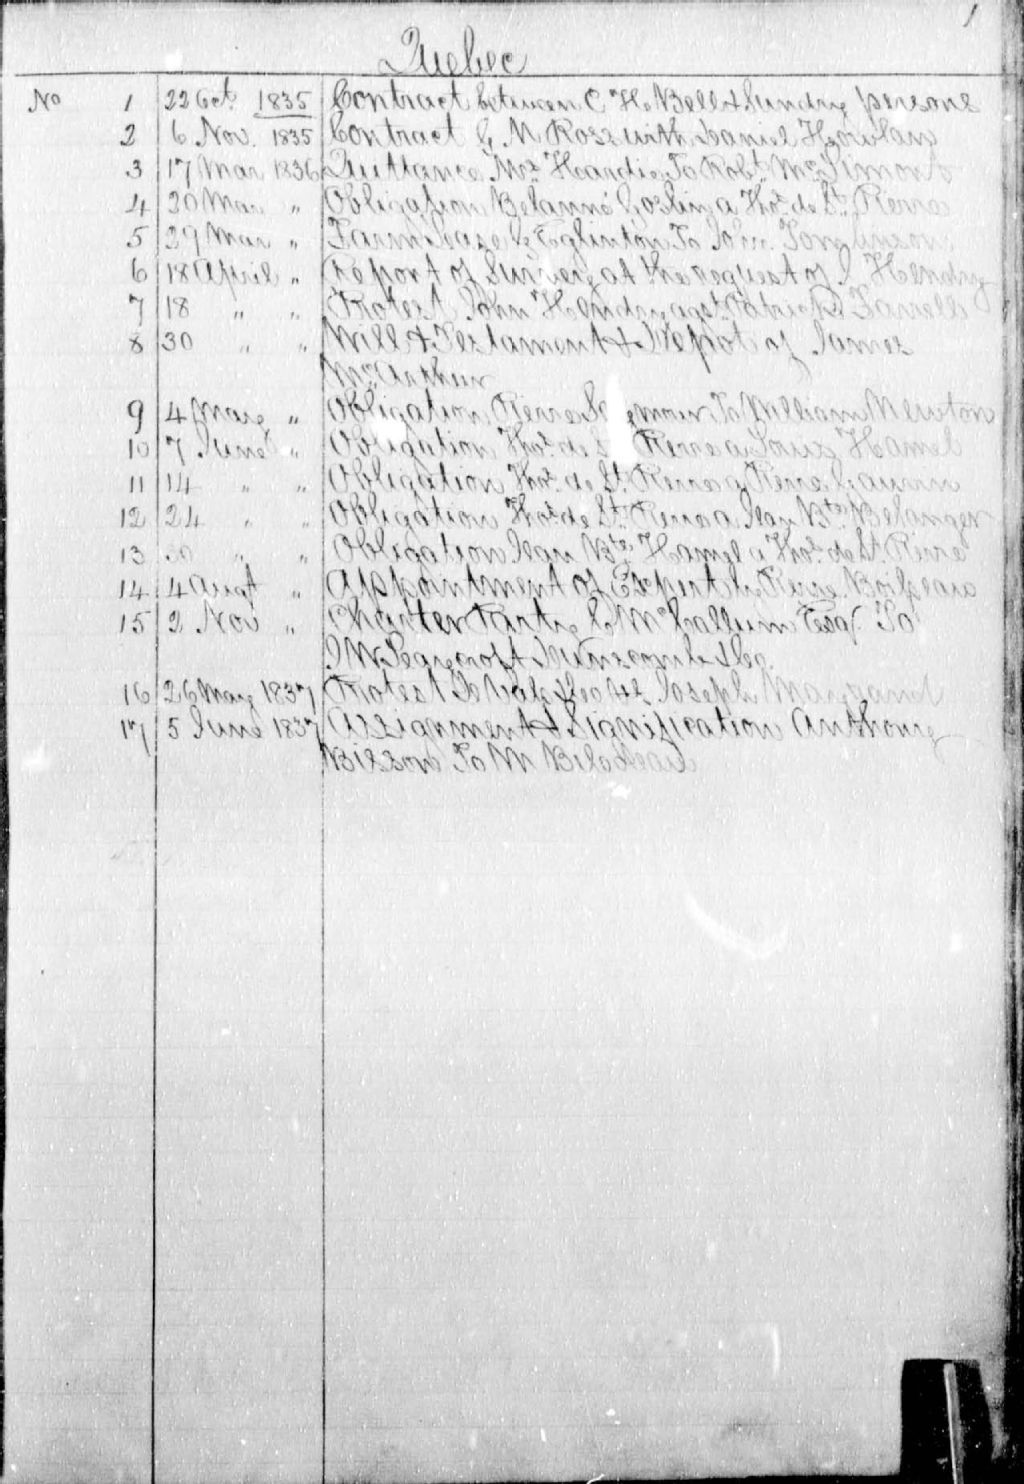 1
Quebec
No 1 22 Oct. 1835 Contract between C H Bell & Sundry persons
2 6 Nov. 1835 Contract G M Ross with Daniel
3 17 Mar 1836 Quittance Mr Hardie To Robt. McLimont
4 20 Mar " Obligation a Thos. de St. Pierre
5 29 Mar " Farm Lease Eglinton To John Tomlinson
6 18 April " Report of Survey at the request of J Hendry
7 18 " " Protest John Hendry agst. Patrick Farrell
8 30 " " Will & Testament & Depot of James
McArthur
9 4 May " Obligation Pierre To William Newton
10 7 June " Obligation Thos. de St Pierre a Louis Hamel
11 14 " " Obligation Thos. de St. Pierre a Pierre
12 24 " " Obligation Thos. de St. Pierre a Jean Bte. Belanger
13 30 " " Obligation Jean Bte. Hamel a Thos. de St. Pierre
14 4 Augt " Appointment of Expert by Pierre Boileau
15 2 Nov " Charter Party McCallum Esqr. To
J W Leaycroft
16 26 May 1837 Protest Joseph
17 5 June 1837 Assignment & Signification Anthony
To M Bilodeau